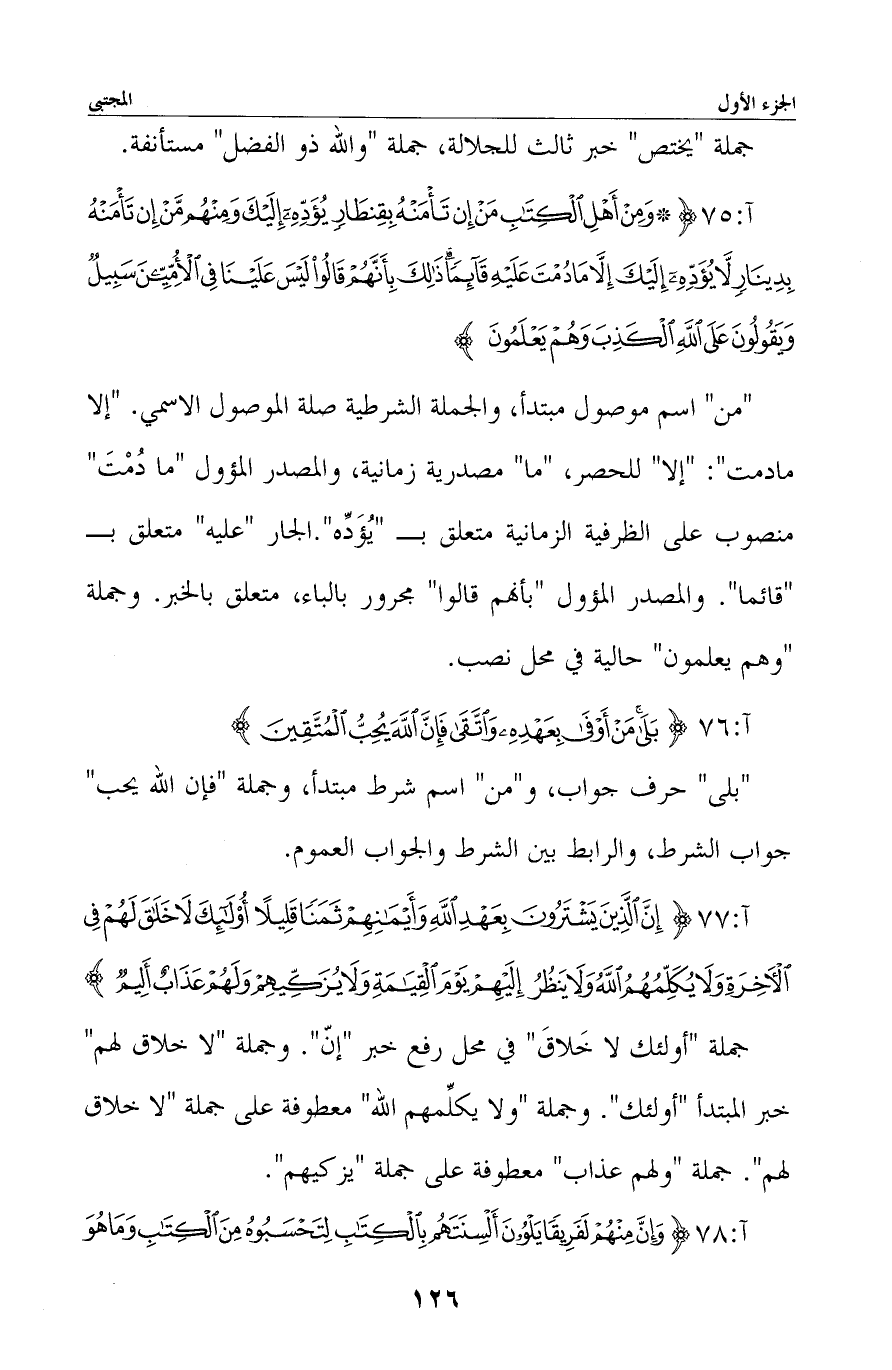 الجزء الأول المجتبى
جملة "يختص" خبر ثالث للجلالة، جملة "والله ذو الفضل" مستأنفة.
آ:٧٥ ﴿ *وَمِنْ أَهْلِ ٱلْكِتَٰبِ مَنْ إِن تَأْمَنْهُ بِقِنطَارٍ يُؤَدِّهِۦٓ إِلَيْكَ وَمِنْهُم مَّنْ إِن تَأْمَنْهُ
بِدِينَارٍ لَّا يُؤَدِّهِۦٓ إِلَيْكَ إِلَّا مَا دُمْتَ عَلَيْهِ قَآئِمًا ۗ ذَٰلِكَ بِأَنَّهُمْ قَالُوا۟ لَيْسَ عَلَيْنَا فِى ٱلْأُمِّيِّـۧنَ سَبِيلٌ
وَيَقُولُونَ عَلَى ٱللَّهِ ٱلْكَذِبَ وَهُمْ يَعْلَمُونَ ﴾
"من" اسم موصول مبتدأ، والجملة الشرطية صلة الموصول الاسمي. "إلا
مادمت": "إلا" للحصر، "ما" مصدرية زمانية، والمصدر المؤول "ما دُمْتَ"
منصوب على الظرفية الزمانية متعلق بـ "يُؤَدِّه".الجار "عليه" متعلق بـ
"قائما". والمصدر المؤول "بأنهم قالوا" مجرور بالباء، متعلق بالخبر. وجملة
"وهم يعلمون" حالية في محل نصب.
آ:٧٦ ﴿ بَلَىٰ ۚ مَنْ أَوْفَىٰ بِعَهْدِهِۦ وَٱتَّقَىٰ فَإِنَّ ٱللَّهَ يُحِبُّ ٱلْمُتَّقِينَ ﴾
"بلى" حرف جواب، و"من" اسم شرط مبتدأ، وجملة "فإن الله يحب"
جواب الشرط، والرابط بين الشرط والجواب العموم.
آ:٧٧ ﴿ إِنَّ ٱلَّذِينَ يَشْتَرُونَ بِعَهْدِ ٱللَّهِ وَأَيْمَٰنِهِمْ ثَمَنًا قَلِيلًا أُو۟لَٰٓئِكَ لَا خَلَٰقَ لَهُمْ فِى
ٱلْءَاخِرَةِ وَلَا يُكَلِّمُهُمُ ٱللَّهُ وَلَا يَنظُرُ إِلَيْهِمْ يَوْمَ ٱلْقِيَٰمَةِ وَلَا يُزَكِّيهِمْ وَلَهُمْ عَذَابٌ أَلِيمٌ ﴾
جملة "أولئك لا خَلاقَ" في محل رفع خبر "إنّ". وجملة "لا خلاق لهم"
خبر المبتدأ "أولئك". وجملة "ولا يكلِّمهم الله" معطوفة على جملة "لا خلاق
لهم". جملة "ولهم عذاب" معطوفة على جملة "يزكيهم".
آ:٧٨ ﴿ وَإِنَّ مِنْهُمْ لَفَرِيقًا يَلْوُۥنَ أَلْسِنَتَهُم بِٱلْكِتَٰبِ لِتَحْسَبُوهُ مِنَ ٱلْكِتَٰبِ وَمَا هُوَ
١٢٦